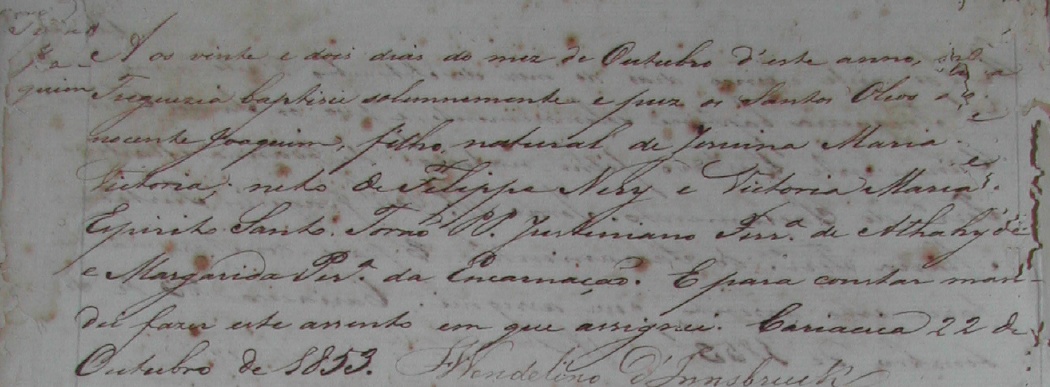 Aos vinte e dois dias do mez de Outubro d'este anno, a
quim Freguezia baptisei solemnemente e puz os Santos Oleos
nocente Joaquim, filho natural de Jovina Maria
Victoria, neto de Filippe Nery e Victoria Maria
Espirito Santo. Forão PP. Justiniano Ferrª de Athahyde
e Margarida Perª da Encarnação. E para constar man-
dei fazer este assento em que assignei. Cariacica 22 de
Outubro de 1853. Wendelino d'Innsbruck